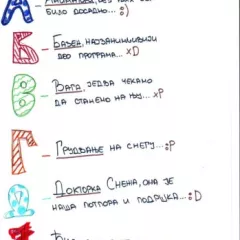 А
било досадно... :)
Б Базен, најзанимљивији
део програма... xD
В Вага, једва чекамо
да станемо на њу... xP
Г Грудвање на снегу... :P
Д Докторка Снежа, она је
наша потпора и подршка... :D